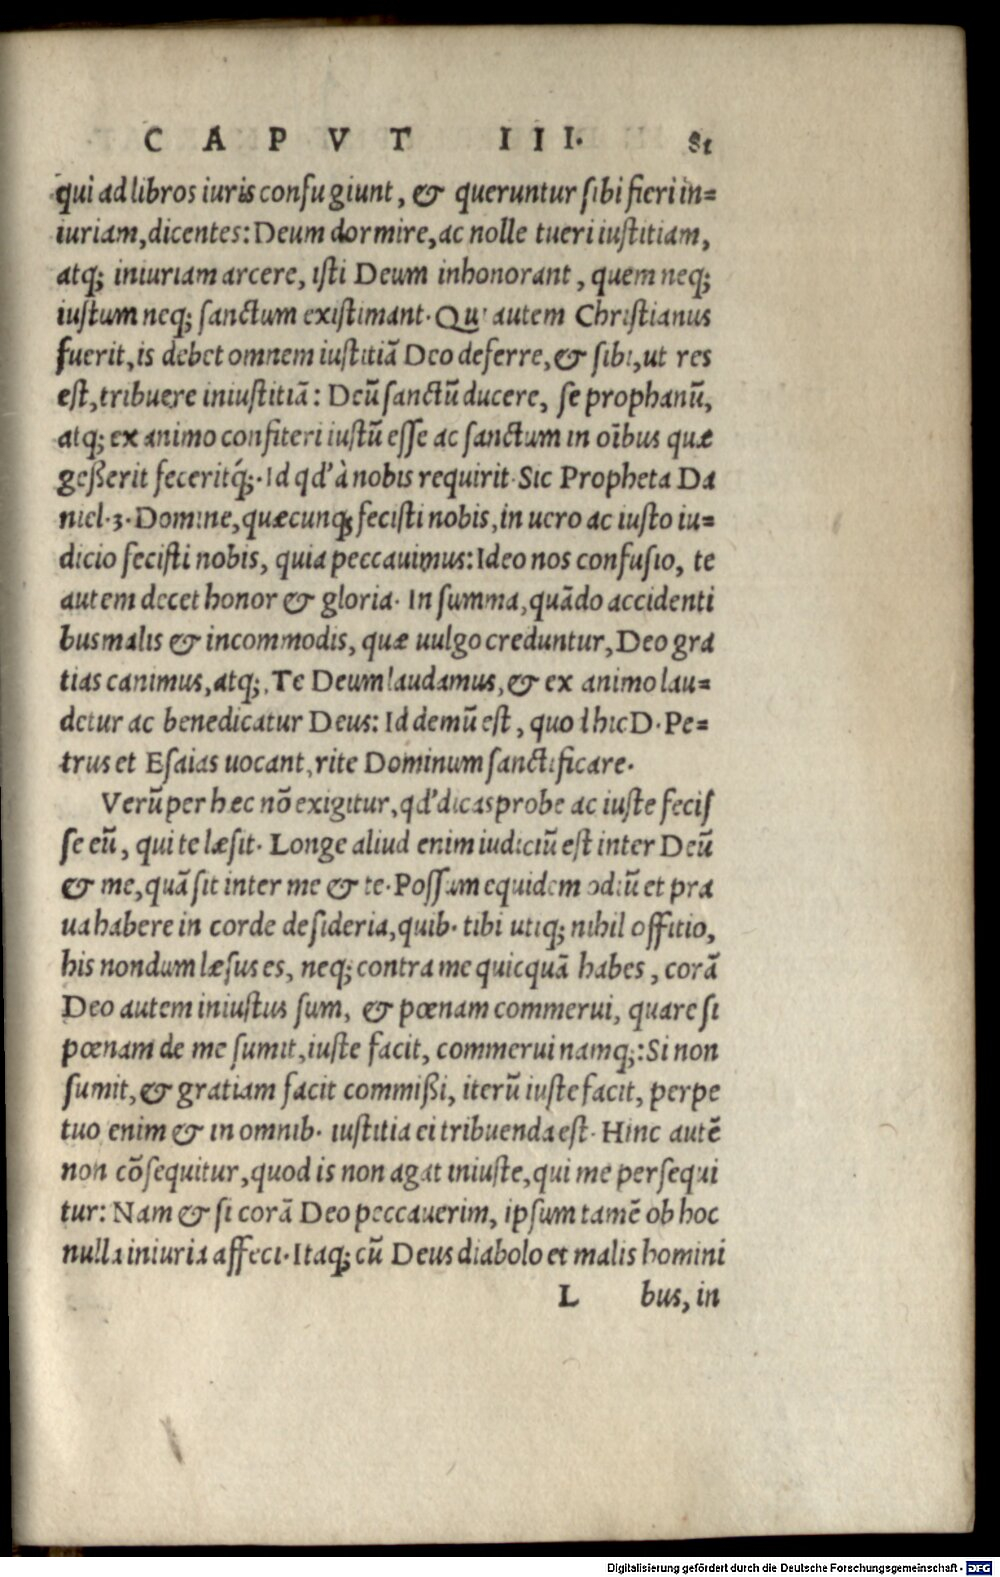 CAPVT III. 81
qui ad libros iuris confugiunt, & queruntur sibi fieri in=
iuriam, dicentes: Deum dormire, ac nolle tueri iustitiam,
atq; iniuriam arcere, isti Deum inhonorant, quem neq;
iustum neq; sanctum existimant. Qui autem Christianus
fuerit, is debet omnem iustitiã Deo deferre, & sibi, ut res
est, tribuere iniustitiã: Deũ sanctũ ducere, se prophanũ,
atq; ex animo confiteri iustũ esse ac sanctum in oĩbus quæ
geßerit feceritq́;. Id qd' à nobis requirit. Sic Propheta Da
niel. 3. Domine, quæcunq; fecisti nobis, in uero ac iusto iu=
dicio fecisti nobis, quia peccauimus: Ideo nos confusio, te
autem decet honor & gloria. In summa, quãdo accidenti
bus malis & incommodis, quæ uulgo creduntur, Deo gra
tias canimus, atq;, Te Deum laudamus, & ex animo lau=
detur ac benedicatur Deus: Id demũ est, quod hic D. Pe=
trus et Esaias uocant, rite Dominum sanctificare.
Verũ per hec nõ exigitur, qd' dicas probe ac iuste fecis
se eũ, qui te læsit. Longe aliud enim iudiciũ est inter Deũ
& me, quã sit inter me & te. Possum equidem odiũ et pra
ua habere in corde desideria, quib. tibi utiq; nihil offitio,
his nondum læsus es, neq; contra me quicquã habes, corã
Deo autem iniustus sum, & pœnam commerui, quare si
pœnam de me sumit, iuste facit, commerui namq;: Si non
sumit, & gratiam facit commißi, iterũ iuste facit, perpe
tuo enim & in omnib. iustitia ei tribuenda est. Hinc autẽ
non cõsequitur, quod is non agat iniuste, qui me persequi
tur: Nam & si corã Deo peccauerim, ipsum tamẽ ob hoc
nulla iniuria affeci. Itaq; cũ Deus diabolo et malis homini
L bus, in
Digitalisierung gefördert durch die Deutsche Forschungsgemeinschaft - DFG